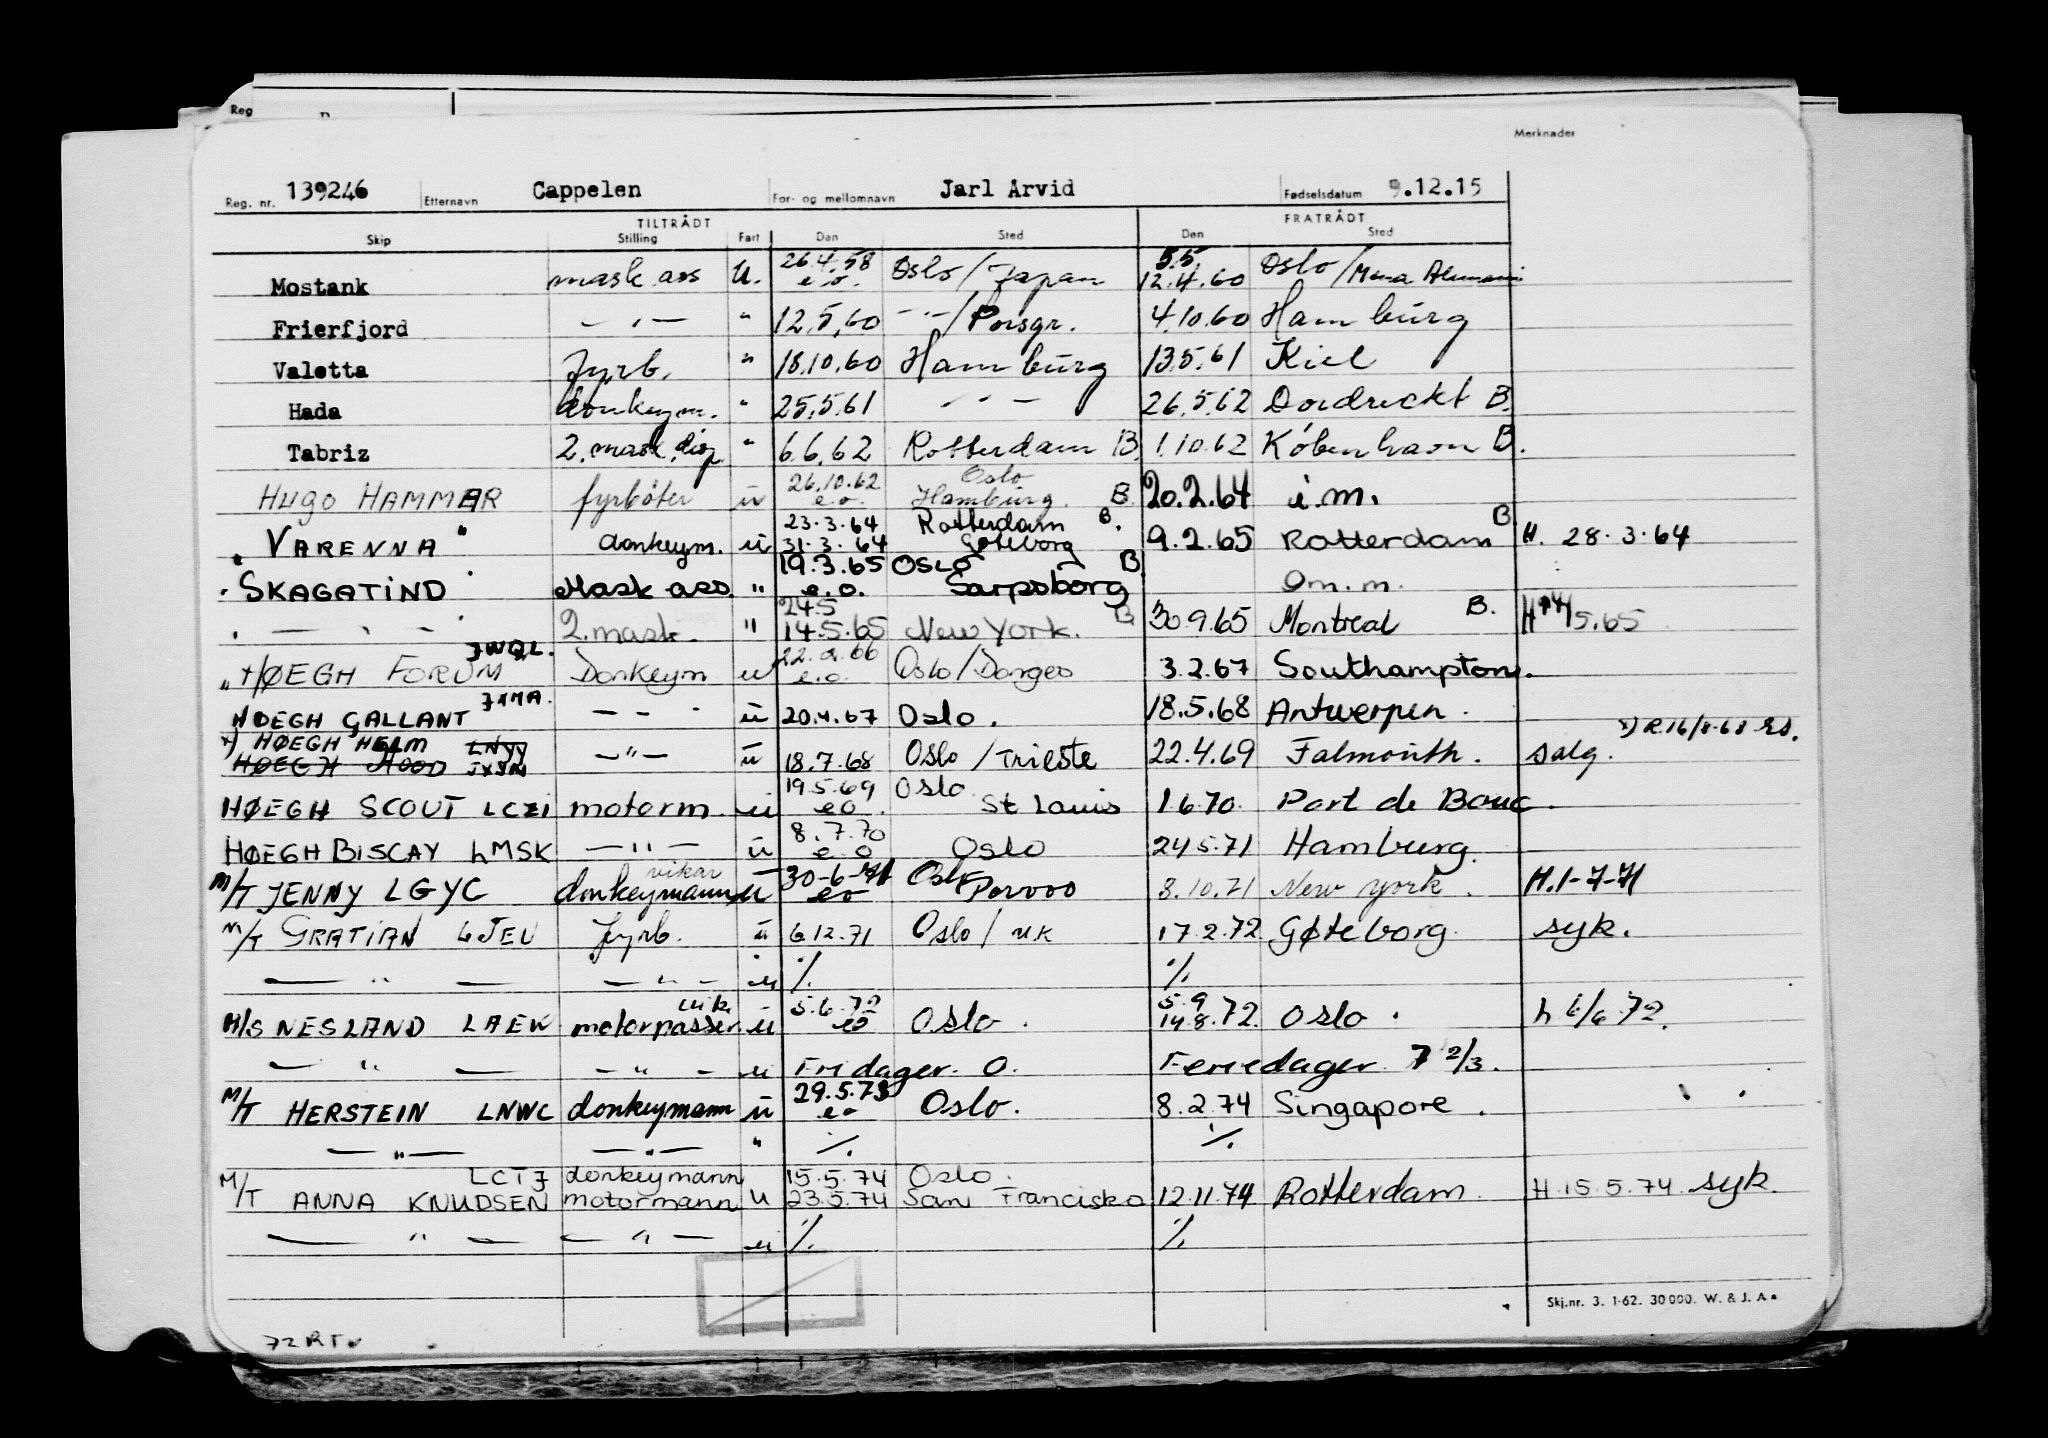 Reg
Merknader
Reg. nr. 139246 Etternavn Cappelen For- og mellomnavn Jarl Arvid Fødselsdatum 9.12.15
TILTRÅDT FRATRÅDT
Skip Stilling Fart Den Sted Den Sted
Mostank mask ass U. 26.4.58 e.o. Oslo/Japan 5.5. 12.4.60 Oslo/Mena
Frierfjord — " — " 12.5.60 — " —/Porsgr. 4.10.60 Hamburg
Valetta Fyrb. " 18.10.60 Hamburg 13.5.61 Kiel
Hada donkeym. " 25.5.61 — " — 26.5.62 Dordreckt B.
Tabriz 2. mask. disp " 6.6.62 Rotterdam B. 1.10.62 København B.
HUGO HAMMER fyrbøter u 26.10.62 e.o. Oslo Hamburg. B. 20.2.64 i.m.
"VARENNA" donkeym. u 23.3.64 31.3.64 Rotterdam B. Gøteborg 9.2.65 Rotterdam B. H. 28.3.64
"SKAGATIND" Mask ass. " 19.3.65 e.o. Oslo B Sarpsborg Om.m.
" — " — " 2. mask. " 24.5 14.5.65 New York. B 30.9.65 Montreal B. H 14/5.65
"HØEGH FORUM JWQL. Donkeym u 22.2.66 e.o. Oslo/Donges 3.2.67 Southampton.
HØEGH GALLANT — " — u 20.4.67 Oslo. 18.5.68 Antwerpen.
x) HØEGH HELM x) R.16/8-68 RS.
HØEGH HOOD — " — u 18.7.68 Oslo/Trieste 22.4.69 Falmouth. salg.
HØEGH SCOUT LCZI motorm. u 19.5.69 eo. Oslo St Louis 1.6.70. Port de Bouc.
HØEGH BISCAY LMSK — " — u 8.7.70 e.o Oslo 24.5.71 Hamburg.
M/T JENNY LGYC vikar donkeymann u 30-6-71 eo Oslo Porvoo 8.10.71 New York. H.1-7-71
M/T GRATIAN LJEU Fyrb. u 6.12.71 Oslo/UK 17.2.72 Gøteborg. syk.
— " — — " — u % %
M/S NESLAND LAEW vik. motorpasser u 5.6.72 eo Oslo. 5.9 14.8.72. Oslo. h 6/6 72.
— " — — " — u Fridager. 0. Feriedager 7 2/3.
M/T HERSTEIN LNWC donkeymann u 29.5.73 eo Oslo. 8.2.74 Singapore.
— " — — " — " % %
M/T ANNA KNUDSEN LCTJ donkeymann motormann u 15.5.74 23.5.74 Oslo. San Francisko 12.11.74 Rotterdam. H. 15.5.74 syk.
— " — — " — u % %
Skj.nr. 3. 1-62. 30 000. W. & J. A.
72 RT.